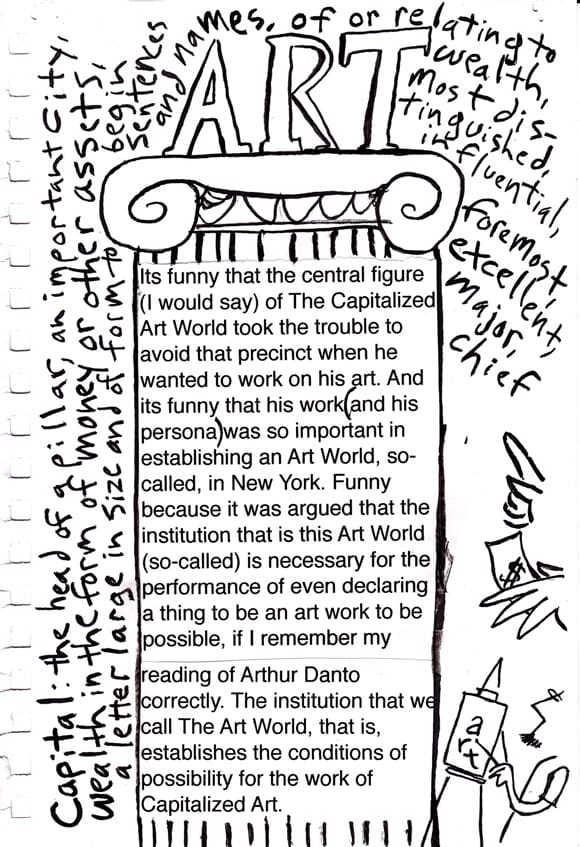 Capital: the head of a pillar, an important City,
wealth in the form of money or other assets,
a letter large in size and of form to
begin
sentences
and names, of or relating to
wealth,
most dis-
tinguished,
influential,
foremost
excellent,
major,
chief
ART
Its funny that the central figure
(I would say) of The Capitalized
Art World took the trouble to
avoid that precinct when he
wanted to work on his art. And
its funny that his work(and his
persona)was so important in
establishing an Art World, so-
called, in New York. Funny
because it was argued that the
institution that is this Art World
(so-called) is necessary for the
performance of even declaring
a thing to be an art work to be
possible, if I remember my
reading of Arthur Danto
correctly. The institution that we
call The Art World, that is,
establishes the conditions of
possibility for the work of
Capitalized Art.
$
art